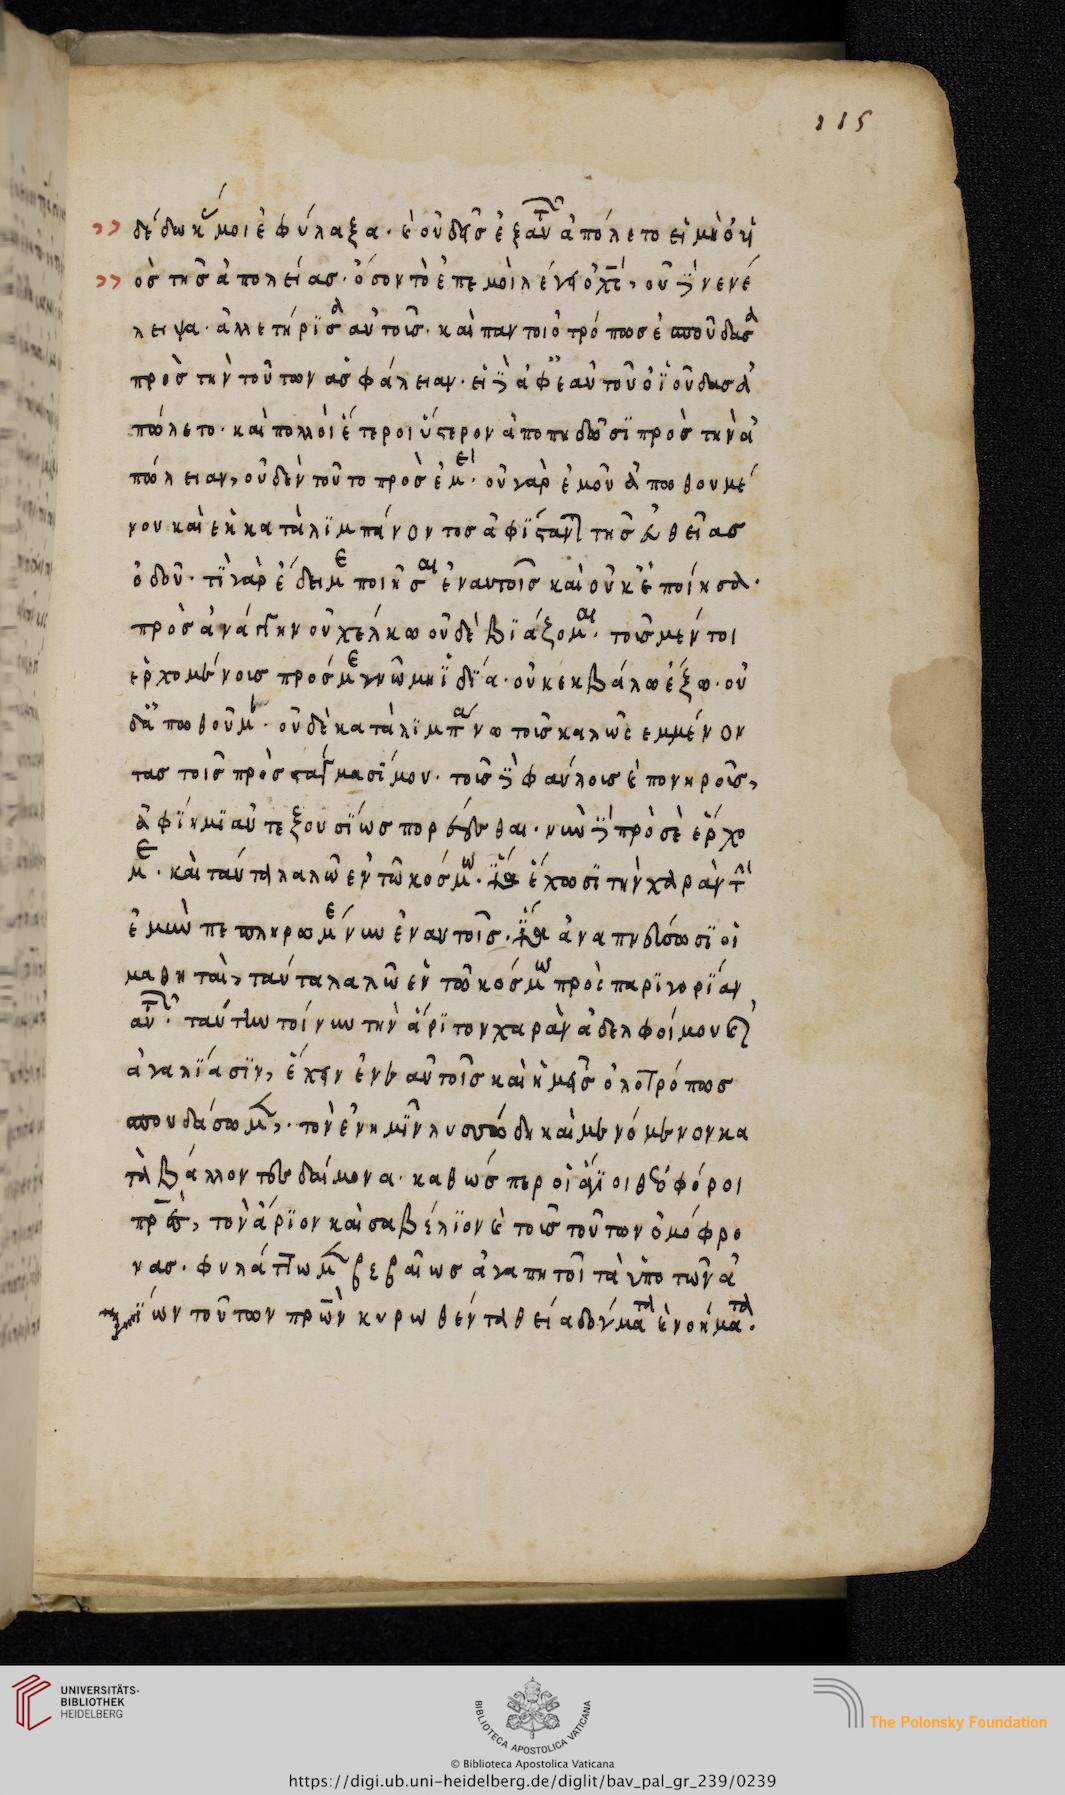 115
δέδωκάς μοι ἐφύλαξα· καὶ οὐδεὶς ἐξ αὐτῶν ἀπόλετο εἰ μὴ ὁ υἱ
ὸς τῆς ἀπολείας· ὅσον τὸ ἐπ ἐμοὶ λέγει ὁ χς, οὐ γὰρ ενέ
λειψα· ἀλλ ετήρισα αὐτοῖς· καὶ παντοιοτρόπως ἐσπούδασα
πρὸς τὴν τούτων ἀσφάλειαν· εἰ γὰρ ἀφ εαὐτοῦ ὁ ϊούδας ἀ
πώλετο· καὶ πολλοὶ ἕτεροι ὕστερον ἀποπηδῶσϊ πρὸς τὴν ἀ
πώλειαν, οὐδὲν τοῦτο πρὸς ἐμε· οὐ γὰρ ἐμοῦ ἀπωθουμέ
νου καὶ ἐγκαταλϊμπάνοντος ἀφϊσταν τῆς εὐθείας
ὁδοῦ· τϊ γὰρ ἔδει με ποιῆσαι ἐν αυτοῖς καὶ οὐκ ἐποίησα·
πρὸς ἀνάγκην οὐχ ελκω οὐδὲ βϊάζομαι· τοῖς μέν τοι
ἐρχομένοις πρός με γνώμη ϊδϊα· οὐκ εκβάλω ἔξω· οὐ
δ ἀπωθοῦμαι· οὐδὲ καταλϊμπάνω τοῖς καλῶς εμμένον
τας τοῖς πρὸσταγμασΐ μου· τοῖς γὰρ φαύλοις καὶ πονηροῖς,
ἀφίημϊ αὐτεξουσϊως πορεύεσθαι· νῦν γὰρ πρὸ σὲ ἔρχο
με· καὶ ταύτα λαλῶ ἐν τῶ κόσμω· ϊνα ἔχωσϊ τὴν χαρὰν τὴν
ἐμὴν πεπληρωμένην ἐν αυτοῖς· ϊνα ἀναπνεύσωσϊ οἱ
μαθηταὶ, ταύτα λαλῶ ἐν τῶ κόσμω πρὸς παρϊγορϊαν
αὐτῶν· ταύτην τοίνυν τὴν ἄρϊτον χαρὰν ἀδελφοί μου καὶ
ἀγαλϊασϊν, ἔχειν ἐν εαὐτοῖς καὶ ἡμεῖς ὁλοτρόπως
σπουδάσωμεν· τὸν ἐν ημῖν λυσσώδη καὶ μενόμενον κα
ταβάλλοντες δαίμονα· καθὼς περ οἱ ἅγϊοι θεοφόροι
πρες, τὸν ἄρϊον καὶ σαβέλϊον καὶ τοῖς τούτων ὁμόφρο
νας· φυλάττωμεν βεβαίως ἀγαπητοὶ τὰ ὑπὸ τῶν ἁ
γϊων τούτων πρων κυρωθέντα θεία δόγματα καὶ νοήματα·
UNIVERSITÄTS-
BIBLIOTHEK
HEIDELBERG
BIBLIOTECA APOSTOLICA VATICANA
The Polonsky Foundation
© Biblioteca Apostolica Vaticana
https://digi.ub.uni-heidelberg.de/diglit/bav_pal_gr_239/0239